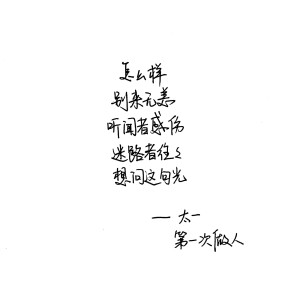 怎么样
别来无恙
听闻者感伤
迷路者往々
想问这句光
— 太一
第一次做人